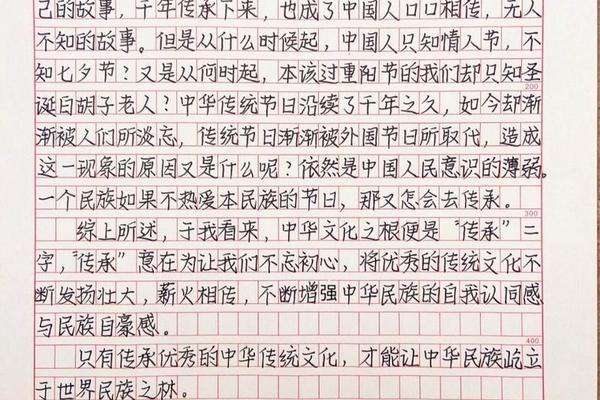 己的故事，千年传承下来，也成了中国人口口相传，无人
不知的故事。但是从什么时候起，中国人只知情人节，不
知七夕节？又是从何时起，本该过重阳节的我们却只知圣
200
诞白胡子老人？中华传统节日沿续了千年之久，如今却渐
渐被人们所淡忘，传统节日渐渐被外国节日所取代，造成
这一现象的原因又是什么呢？依然是中国人民意识的薄弱。
一个民族如果不热爱本民族的节日，那又怎会去传承。
300
综上所述，于我看来，中华文化之根便是“传承”二
字，“传承”意在为让我们不忘初心，将优秀的传统文化不
断发扬壮大，薪火相传，不断增强中华民族的自我认同感
与民族自豪感。
400
只有传承优秀的中华传统文化，才能让中华民族屹立
于世界民族之林。